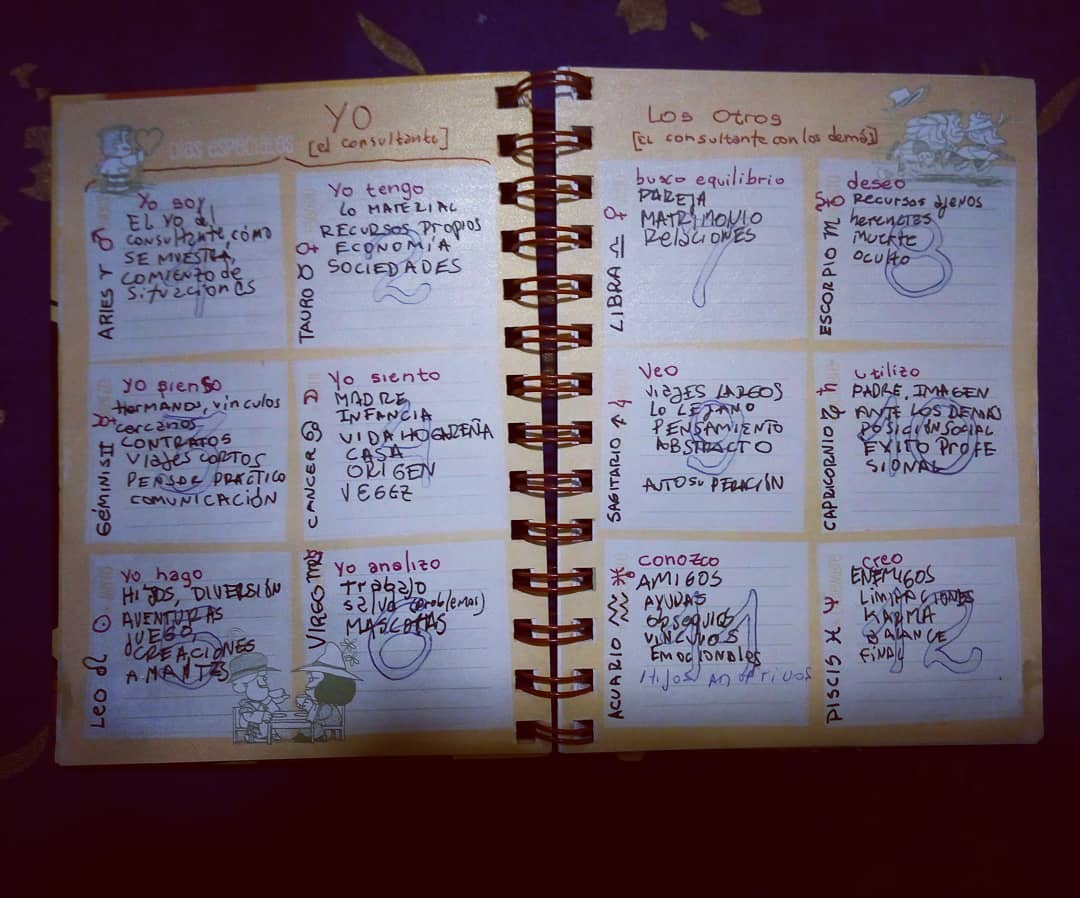 YO
[el consultante]
Días especiales
ARIES ♈ ♂
Yo soy
EL YO del
CONSULTANTE, CÓMO
SE MUESTRA,
COMIENZO de
situaciones
1
TAURO ♉ ♀
Yo tengo
LO MATERIAL
RECURSOS PROPIOS
ECONOMÍA
SOCIEDADES
2
GÉMINIS II ☿
yo pienso
HERMANOS, vínculos
cercanos
CONTRATOS
Viajes cortos
PENSAR PRÁCTICO
COMUNICACIÓN
3
CANCER ♋ ☽
Yo siento
MADRE
INFANCIA
VIDA HOGAREÑA
CASA
ORIGEN
VEGEZ
4
LEO ♌ ⊙
yo hago
HIJOS, DIVERSIÓN
AVENTURAS
JUEGO
CREACIONES
AMANTES
5
VIRGO ♍ ☿
Yo analizo
Trabajo
salud (problemas)
MASCOTAS
6
Los Otros
[EL consultante con los demás]
LIBRA ♎ ♀
busco equilibrio
PAREJA
MATRIMONIO
RELACIONES
7
ESCORPIO ♏
deseo
RECURSOS ajenos
herencias
Muerte
oculto
8
SAGITARIO ♐ ♃
Veo
VIAJES LARGOS
LO LEJANO
PENSAMIENTO
ABSTRACTO
AUTOSUPERACIÓN
9
CAPRICORNIO ♑ ♄
utilizo
PADRE, IMAGEN
ANTE LOS DEMÁS
POSICIÓN SOCIAL
EXITO PROFE
SIONAL
10
ACUARIO ♒ ♅
conozco
AMIGOS
AYUDAS
obsequios
VINCULOS
EMOCIONALES
Hijos adoptivos
11
PISCIS ♓ ♆
creo
ENEMIGOS
LIMITACIONES
KARMA
BALANCE
FINAL
12